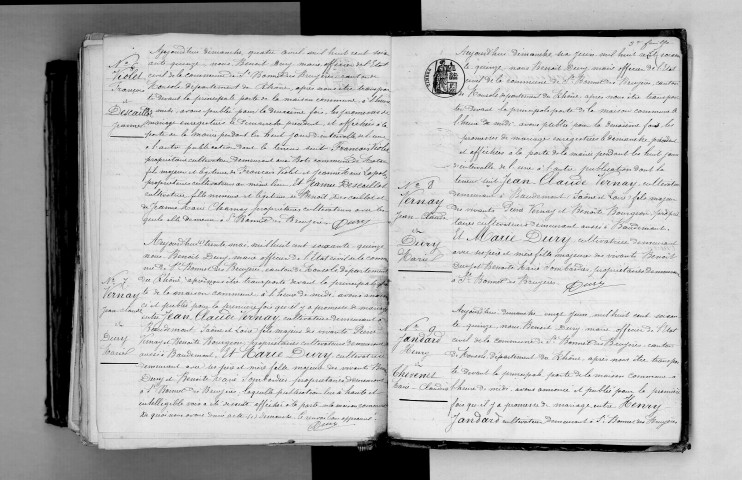 Aujourd'hui dimanche, quatre avril mil huit cent soixante
quinze nous Benoit Dury maire officier de l'Etat
civil de la commune de St Bonnet des Bruyères canton de
Monsols département du Rhône, après nous être transporté
devant la principale porte de la maison commune, à l'heure
de midi, avons publié pour la deuxième fois les promesses de
mariage enregistrées le dimanche précédent et affichées à la
porte de la mairie pendant les huit jours d'intervalle de l'une
à l'autre publication dont la teneur suit François Violet
propriétaire cultivateur demeurant aux commune de
fils majeur et légitime de François Violet et
propriétaires cultivateurs au même lieu Et Jeanne Descaillot
cultivatrice, fille mineure et légitime de Benoit Descaillot et
de Jeanne Marie Charnay propriétaires cultivateurs avec les
quels elle demeure à St Bonnet des Bruyères. Dury
Violet
François
et
Descaillot
Jeanne
Aujourd'hui trente mai mil huit cent soixante quinze
nous Benoit Dury, maire officier de l'Etat civil de la com
mune de St Bonnet des Bruyères, canton de Monsols département
du Rhône, après nous être transporté devant la principale porte
de la maison commune à l'heure de midi, avons annon
cé et publié pour la première fois qu'il y a promesse de mariage
entre Jean Claude Vernay, cultivateur demeurant à
Baudemont Saône et Loire fils majeur des vivants Pierre
Vernay et Benoite Bourgeon propriétaires cultivateurs demeurant
aussi à Baudemont. Et Marie Dury cultivatrice
demeurant avec ses père et mère fille majeure des vivants Benoit
Dury et Benoite propriétaires demeurant
à St Bonnet des Bruyères, laquelle publication lue à haute et
intelligible voix a été de suite affichée à la porte de la maison commune
De quoi nous avons dressé acte
Dury
Vernay
Jean Claude
et
Dury
Marie
Aujourd'hui dimanche, six juin mil huit cent soixante
quinze, nous Benoit Dury maire officier de l'Etat
civil de la commune de St Bonnet des Bruyères, canton
de Monsols département du Rhône, après nous être transporté
devant la principale porte de la maison commune à
l'heure de midi, avons publié pour la deuxième fois les
promesses de mariage enregistrées le dimanche précédent
et affichées à la porte de la mairie pendant les huit jours
d'intervalle de l'une à l'autre publication dont la
teneur suit Jean Claude Vernay, cultivateur
demeurant à Baudemont Saône et Loire fils majeur
des vivants Pierre Vernay et Benoite Bourgeon proprié
taires cultivateurs demeurant aussi à Baudemont.
Et Marie Dury, cultivatrice demeurant
avec ses père et mère fille majeure des vivants Benoit
Dury et Benoite propriétaires demeurant
à St Bonnet des Bruyères.
Dury
No 8
Vernay
Jean Claude
et
Dury
Marie
Aujourd'hui dimanche vingt juin mil huit cent soixan
te quinze, nous Benoit Dury maire officier de l'Etat
civil de la commune de St Bonnet des Bruyères canton
de Monsols département du Rhône, après nous être transpor
té devant la principale porte de la maison commune à
l'heure de midi, avons annoncé et publié pour la première
fois qu'il y a promesse de mariage entre Henry
Jandard cultivateur demeurant à St Bonnet des Bruyères
No 9
Jandard
Henry
et
Chevenet
Marie Claudine